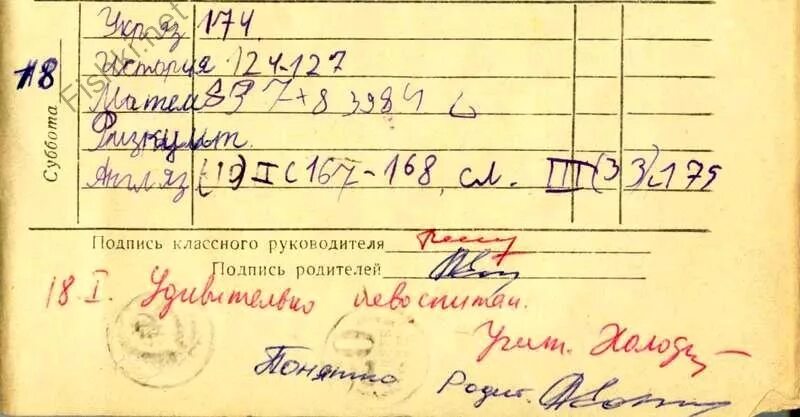 Укр яз 174.
18 История 124-127
Матем 837+8 3984
Суббота
Физкульт.
Англ яз (10) II с 167-168, сл. III (33) с 175
Подпись классного руководителя
Подпись родителей
18 I. Удивительно невоспитан.
Учит. Холод
Понятно Родит.
Fishki.net